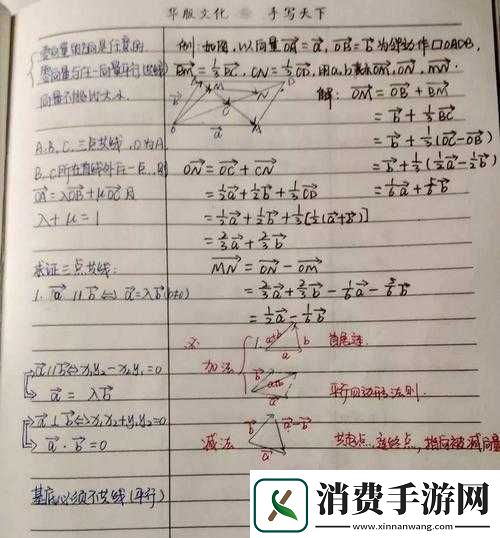 华版文化 手写天下
零向量的方向是任意的.
零向量与任一向量平行(共线)
向量不能比大小.
A.B.C.三点共线,O为A.
B.C所在直线外任一点.则
OA=λOB+μOC 且
λ+μ=1
求证三点共线:
1. a∥b⇔a=λb(b≠0)
a∥b⇔x₁y₂-x₂y₁=0
a=λb
a⊥b⇔x₁x₂+y₁y₂=0
a·b=0
基底必须不共线(平行)
例:如图,以向量OA=a,OB=b为邻边作▱OADB,
BM=1/3BC,CN=1/3CD,用a,b表示OM,ON,MN.
解:OM=OB+BM
=b+1/3BC
=b+1/3(OC-OB)
=b+1/3(1/2a-1/2b)
=1/6a+5/6b
ON=OC+CN
=1/2a+1/2b+1/3CD
=1/2a+1/2b+1/3[1/2(a+b)]
=2/3a+2/3b
MN=ON-OM
=2/3a+2/3b-1/6a-5/6b
=1/2a-1/6b
加法
1.
a+b
b
a
首尾连.
b
a+b
a
平行四边形法则.
减法
b
a-b
a
共起点,连终点,指向被减向量
消费手游网
www.xinnanwang.com